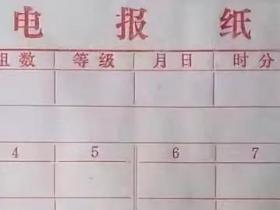 电报纸
组数 等级 月日 时分
4 5 6 7